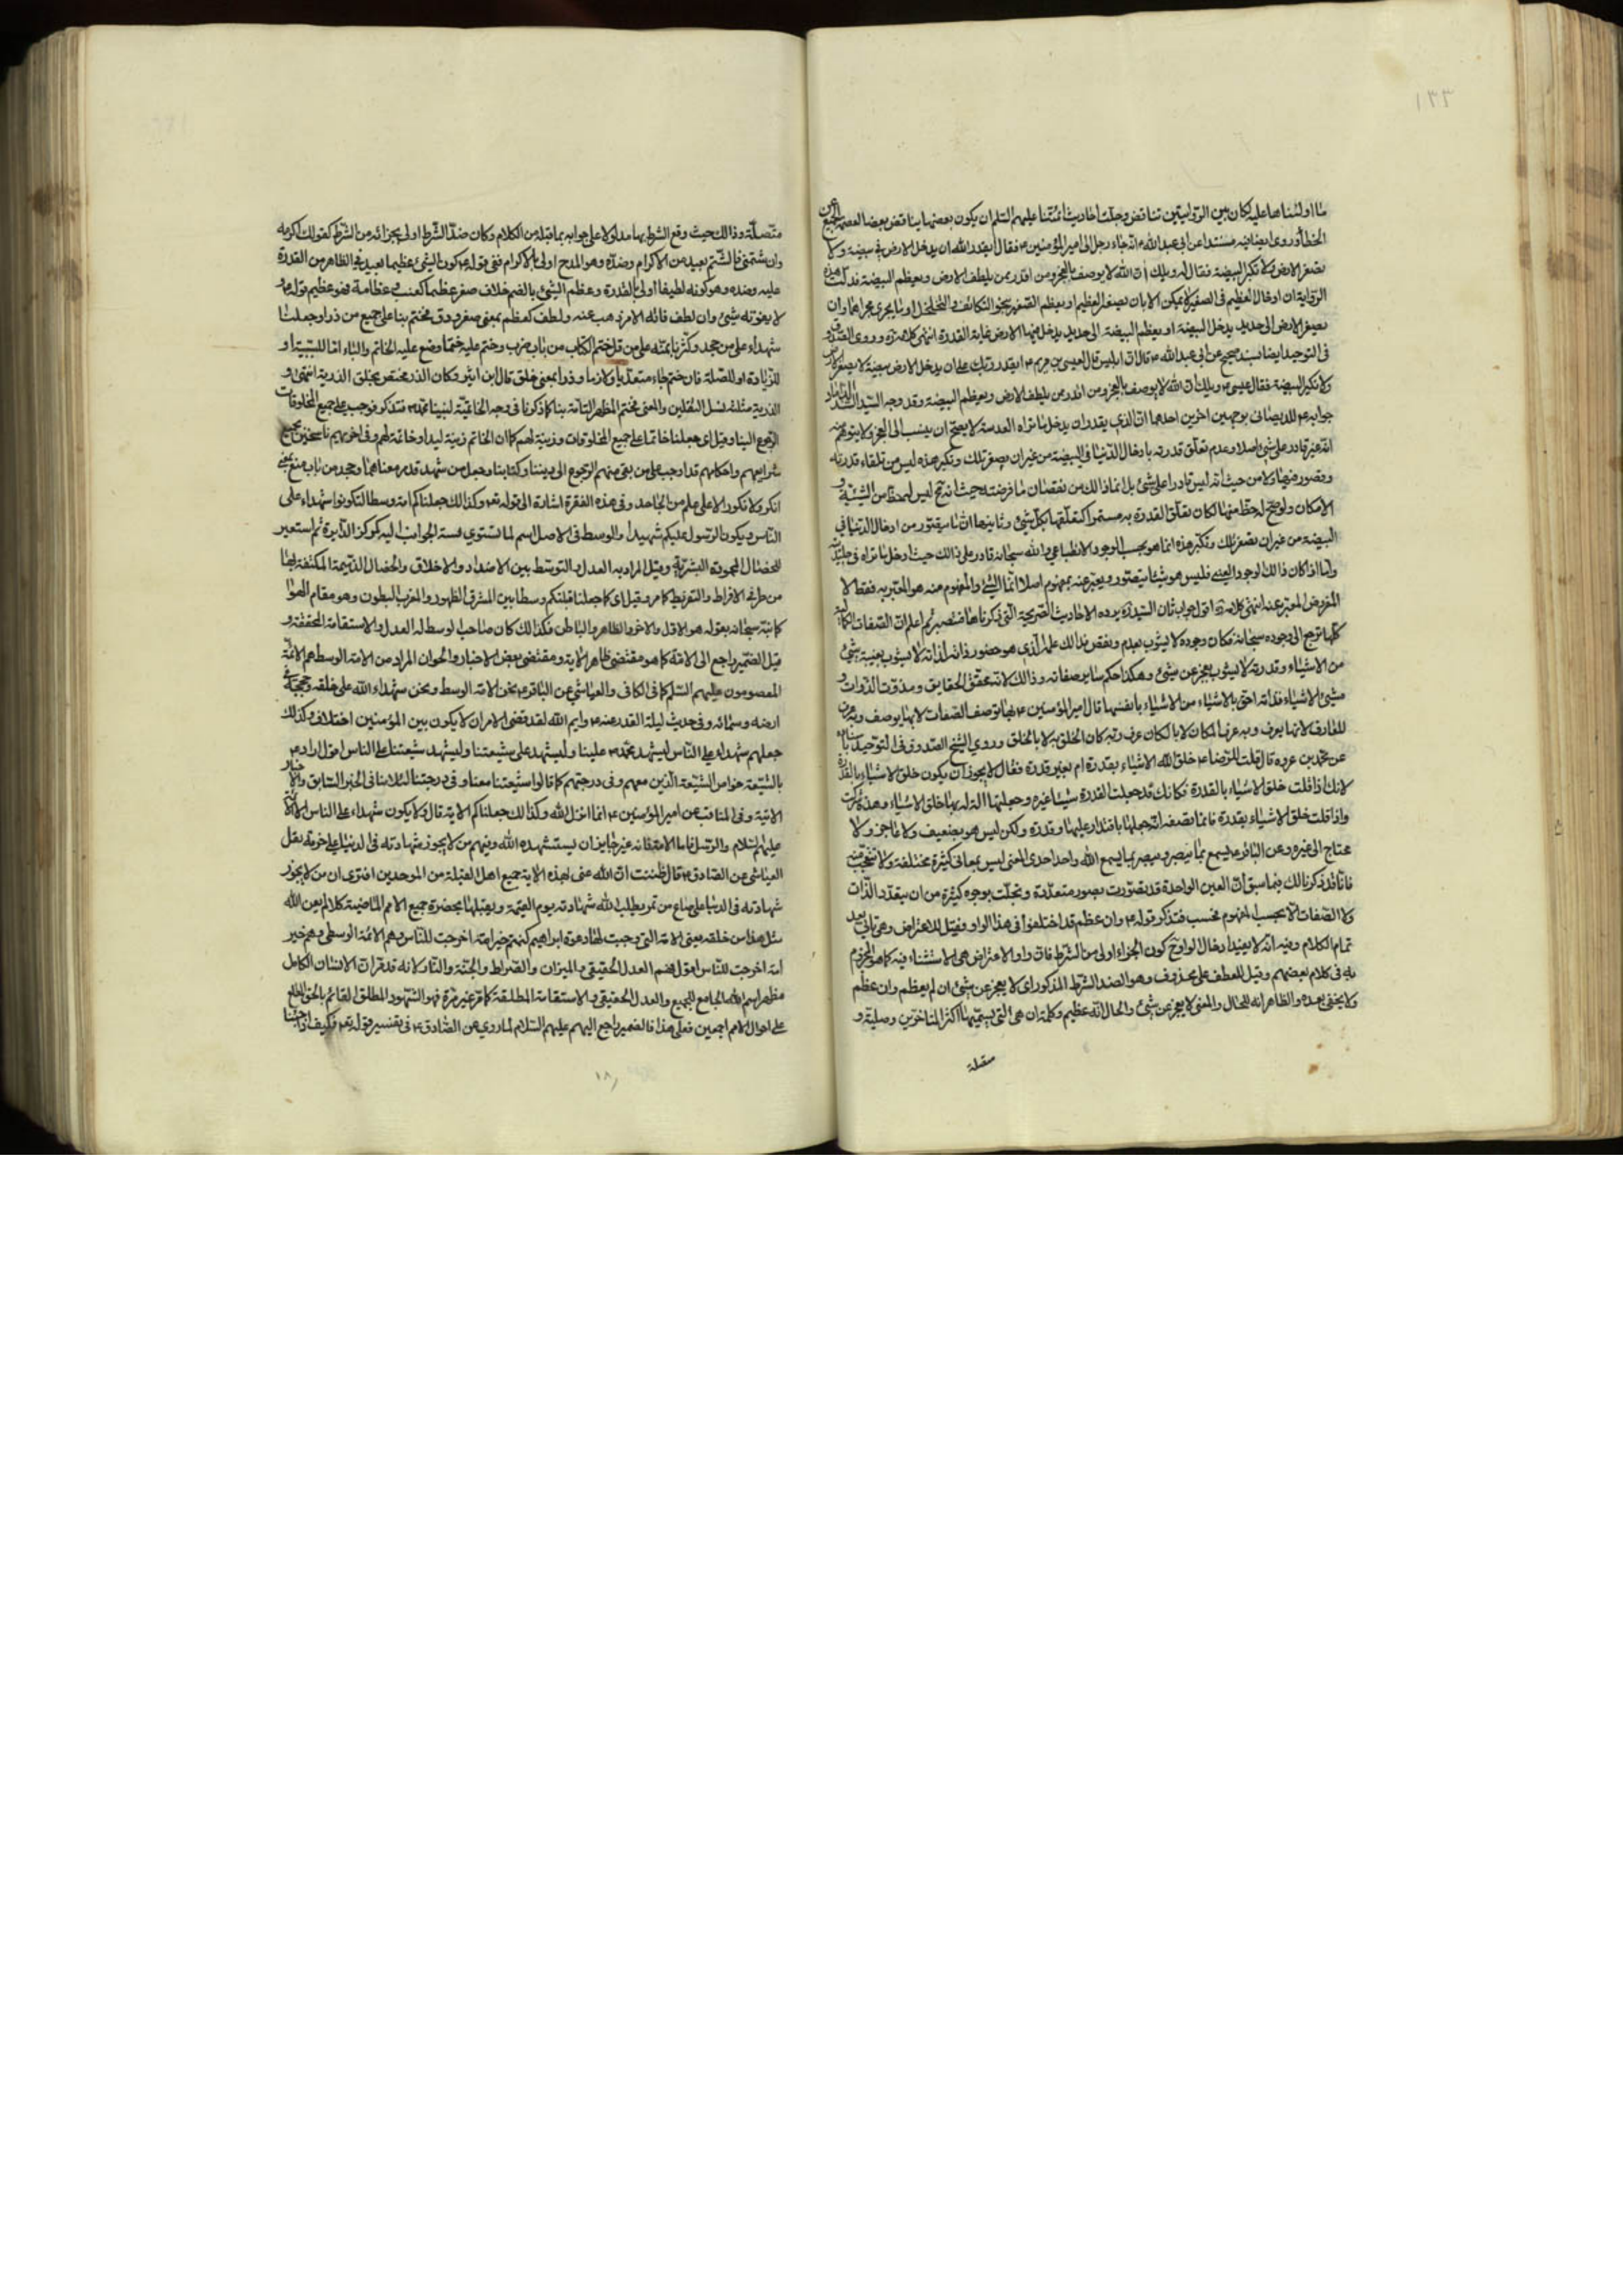 ١٣٣
ما اولناها عليه لكان بين الروايتين تناقض وجلت احاديث ائمتنا عليهم السلم ان يكون بعضها يناقض بعضا لعصمة الجميع عن
الخطأ وروى ايضا فيه مسندا عن ابى عبد الله ع انه جاء رجل الى امير المؤمنين ع فقال ايقدر الله ان يدخل الارض فى بيضة ولا
يصغر الارض ولا تكبر البيضة فقال له ويلك ان الله لا يوصف بالعجز ومن اقدر ممن يلطف الارض ويعظم البيضة فدلت هذه
الرواية ان ادخال العظيم فى الصغير لا يمكن الا بان يصغر العظيم او يعظم الصغير بنحو التكاثف والتخلخل او ما يجرى مجراهما وان
تصغير الارض الى حد يدخل البيضة او يعظم البيضة الى حد يدخل فيها الارض غاية القدرة انتهى كلامه ره وروى الصدوق
فى التوحيد ايضا بسند صحيح عن ابى عبد الله ع قال ان ابليس قال لعيسى بن مريم ع ايقدر ربك على ان يدخل الارض بيضة لا يصغر الارض
ولا تكبر البيضة فقال عيسى ع ويلك ان الله لا يوصف بالعجز ومن اقدر ممن يلطف الارض ويعظم البيضة وقد وجه السيد الداماد
جوابه ع للديصانى بوجهين اخرين احدهما ان الذى يقدر ان يدخل ما تراه العدسة لا يصح ان ينسب الى العجز ولا يتوهم فيه
انه غير قادر على شئ اصلا وعدم تعلق قدرته بادخال الدنيا فى البيضة من غير ان يصغر تلك وتكبر هذه ليس من تلقاء قدرته
وقصور فيها ولا من حيث انه ليس قادرا على شئ بل انما ذلك من نقصان ما فرضته حيث انه مح ليس له حظ من الشيئية و
الامكان ولو صح له حظ منها لكان تعلق القدرة به مستمرا كتعلقها بكل شئ وثانيها ان ما يتصور من ادخال الدنيا فى
البيضة من غير ان يصغر تلك وتكبر هذه انما هو بحسب الوجود الانطباعى والله سبحانه قادر على ذلك حيث ادخل ما تراه فى جليدية
واما اذا كان ذلك الوجود العينى فليس هو شيئا يتصور ويعبر عنه بمفهوم اصلا انما الشئ والمفهوم منه هو المعبر به فقط لا
المفروض المعبر عنه انتهى كلامه ره اقول جوابه ثان السيد ره يرده الاحاديث الصريحة التى ذكرناها فتبصر ثم اعلم ان الصفات الكمالية
كلها ترجع الى وجوده سبحانه فكان وجوده لا يشوب بعدم ونقص فذالك علمه الذى هو حضور ذاته لذاته لا يشوب بغيبة شئ
من الاشياء وقدرته لا يشوب بعجز عن شئ وهكذا حكم سائر صفاته وذالك لانه محقق الحقايق ومذوت الذوات و
مشئ الاشياء فذاته احق بالاشياء من الاشياء بانفسها قال امير المؤمنين ع بها توصف الصفات لا بها يوصف وبه عرف
المعارف لا بها يعرف وبه عرف المكان لا بالمكان عرف وبه كان الخلق به لا بالخلق وروى الشيخ الصدوق فى التوحيد باسناده
عن محمد بن عرفة قال قلت للرضا ع خلق الله الاشياء بقدرة ام بغير قدرة فقال لا يجوز ان يكون خلق الاشياء بالقدرة
لانك اذا قلت خلق الاشياء بالقدرة فكانك قد جعلت القدرة شيئا غيره وجعلتها الة له بها خلق الاشياء وهذه شرك
واذا قلت خلق الاشياء بقدرة فانما تصفه انه جعلها باقتدار عليها وقدرة ولكن ليس هو بضعيف ولا عاجز ولا
محتاج الى غيره وعن الباقر ع يسمع بما يبصر ويبصر بما يسمع الله واحد احدى المعنى ليس بمعانى كثيرة مختلفة ولا تتعجب منه
فانا قد ذكرنا لك فيما سبق ان العين الواحدة قد تصورت بصور متعددة وتجلت بوجوه كثيرة من ان يتعدد الذات
ولا الصفات الا بحسب المفهوم فحسب فتذكر قوله ع وان عظم قد اختلفوا فى هذا الواو فقيل للاعتراض وهى تاتى بعد
تمام الكلام وفيه انه لا يفيد ادخال الواو مح كون الجزاء اولى من الشرط فان واو الاعتراض هى الاستثناء فيه كما هو المجزوم
به فى كلام بعضهم وقيل للعطف على محذوف وهو الضد الشرط المذكور اى لا يعجز عن شئ ان لم يعظم وان عظم
ولا يخفى بعده والظاهر انه للحال والمعنى لا يعجز عن شئ والحال انه عظيم وكلمة ان هى التى يسميها اكثر المتاخرين وصلية و
متصلة
متصلة وذالك حيث وقع الشرط بها مدلولا على جوابه بما قبله من الكلام وكان ضد الشرط اولى بجزائه من الشرط كقولك اكرمه
وان شتمنى فالشتم بعيد من الاكرام وضده وهو المدح اولى بالاكرام ففى قوله ع كون الشئ عظيما بعيد فى الظاهر من القدرة
عليه وضده وهو كونه لطيفا اولى بالقدرة وعظم الشئ بالضم خلاف صغر عظما كعنب وعظامة فهو عظيم قوله ع و
لا يفوته شئ وان لطف فاته الامر ذهب عنه ولطف كعظم بمعنى صغر ودق فختم بنا على جميع من ذرا وجعلنا
شهداء على من جحد وكثرنا بمنه على من قل ختم الكتاب من باب ضرب وختم عليه ختما وضع عليه الخاتم والباء اما للسببية او
للزيادة او للصلة فان ختم جاء متعديا ولازما وذرا بمعنى خلق قال ابن اثير وكان الذر مختص بخلق الذرية انتهى و
الذرية مثلثة نسل الثقلين والمعنى فختم المظاهر التامة بنا كما ذكرنا فى وجه الخاتمية لنبينا محمد ص فتذكر فوجب على جميع المخلوقات
الرجوع الينا وقيل اى جعلنا خاتما على جميع المخلوقات وزينة لهم كما ان الخاتم زينة ليد او خاتمة لهم وفى اخرهم ناسخين بجميع
شرايعهم واحكامهم قد اوجب على من بقى منهم الرجوع الى ديننا وكتابنا وجعل من شهد قد مر معناهما وجحد من باب منع بمعنى
انكر ولا نكورا لا على علم من الجاحد وفى هذه الفقرة اشارة الى قوله تعو وكذالك جعلناكم امة وسطا لتكونوا شهداء على
الناس ويكون الرسول عليكم شهيدا والوسط فى الاصل اسم لما تستوى نسبة الجوانب اليه كمركز الدايرة ثم استعير
للخصال المحمودة البشرية وقيل المراد به العدل والتوسط بين الاضداد والاخلاق والخصال الذميمة المكتنفة بها
من طرفى الافراط والتفريط كما مر وقيل اى كما جعلنا قبلتكم وسطا بين المشرق الظهور والمغرب البطون وهو مقام الهوا
كما نبه سبحانه بقوله هو الاول والاخر والظاهر والباطن فكذالك كان صاحب الوسط له العدل والاستقامة المحققة و
قيل الضمير راجع الى الامة كما هو مقتضى ظاهر الاية ومقتضى بعض الاخبار والحوان المراد من الامة الوسط هم الائمة
المعصومون عليهم السلم كما فى الكافى والعياشى عن الباقر ع نحن الامة الوسط ونحن شهداء الله على خلقه وحججه فى
ارضه وسمائه وفى حديث ليلة القدر عنه ع وايم الله لقد قضى الامر ان لا يكون بين المؤمنين اختلاف ولذلك
جعلهم شهداء على الناس ليشهد محمد ص علينا ولنشهد على شيعتنا وليشهد شيعتنا على الناس اقول اراد ع
بالشيعة خواص الشيعة الذين معهم وفى درجتهم كما قالوا شيعتنا معنا وفى درجتنا لئلا ينافى الخبر السابق والاخبار
الاتية وفى المناقب عن امير المؤمنين ع انما انزل الله وكذالك جعلناكم الاية قال ولا يكون شهداء على الناس الا الائمة
عليهم السلام والرسل فاما الامة فانه غير جايز ان يستشهده الله وفيهم من لا يجوز شهادته فى الدنيا على حزمة بقل
العياشى عن الصادق ع قال ظننت ان الله عنى بهذه الاية جميع اهل القبلة من الموحدين افترى ان من لا يجوز
شهادته فى الدنيا على صاع من تمر يطلب الله شهادته يوم القيمة ويقبلها بحضرة جميع الامم الماضية كلا لم يعن الله
مثل هذا من خلقه يعنى الامة التى وجبت لها دعوة ابراهيم كنتم خير امة اخرجت للناس وهم الائمة الوسطى وهم خير
امة اخرجت للناس اقول فهم العدل الحقيقى والميزان والصراط والجنة والنار لانه قد تقرر ان الانسان الكامل
مظهر اسم الله الجامع للجميع والعدل الحقيقى والاستقامة المطلقة كما مر غير مرة فهو الشهود المطلق القائم بالحق المطلع
على احوال الامم اجمعين فعلى هذا فالضمير راجع اليهم عليهم السلام لما روى عن الصادق ع فى تفسير قوله تع فكيف اذا جئنا